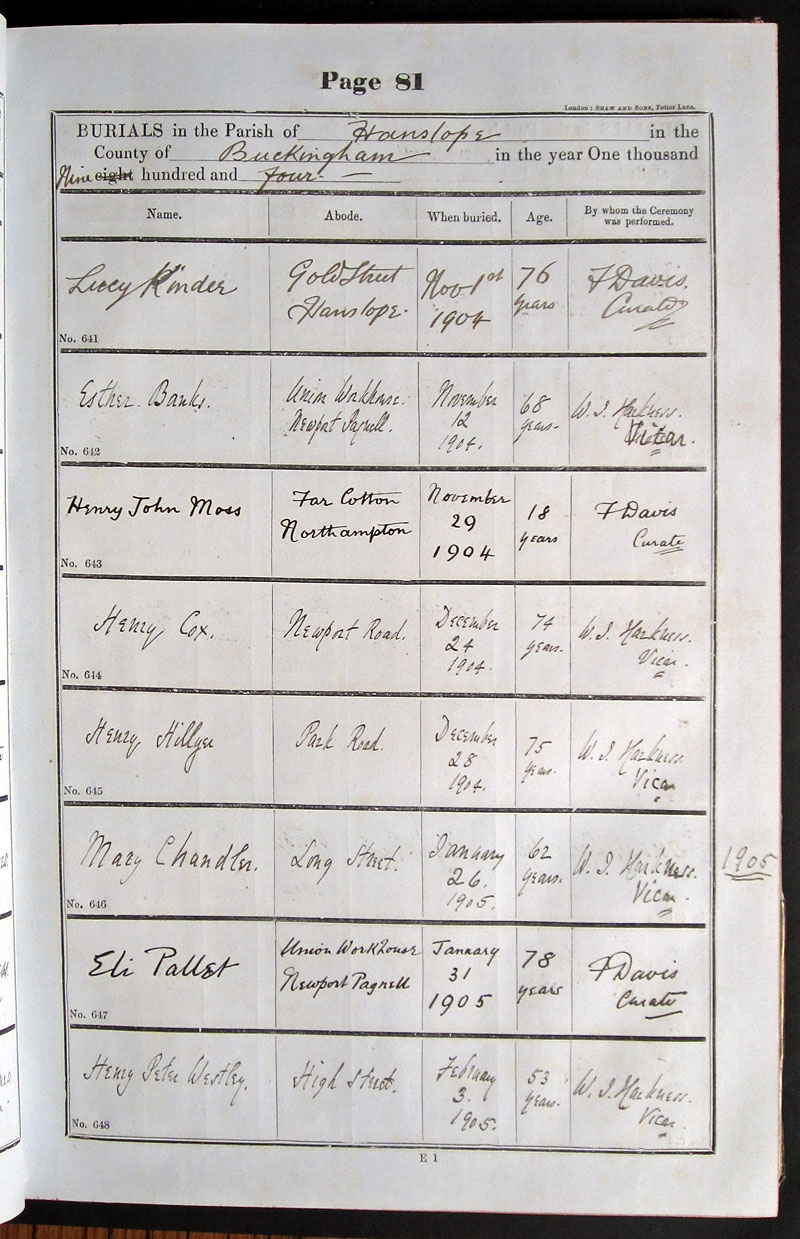 Page 81
London: SHAW AND SONS, Fetter Lane.
BURIALS in the Parish of Hanslope in the
County of Buckingham in the year One thousand
Nine eight hundred and four
Name. Abode. When buried. Age. By whom the Ceremony
was performed.
Lucy Kinder
Gold Street
Hanslope.
Nov 1st
1904
76
years
F Davis.
Curate
No. 641
Esther Banks.
Union Workhouse.
Newport Pagnell.
November
12
1904.
68
years.
W. J. Harkness.
Vicar.
No. 642
Henry John Moss
Far Cotton
Northampton
November
29
1904
18
years
F Davis
Curate
No. 643
Henry Cox.
Newport Road.
December
24
1904.
74
years.
W. J. Harkness.
Vicar.
No. 644
Henry Hillyer
Park Road.
December
28
1904.
75
years.
W. J. Harkness
Vicar
No. 645
Mary Chandler.
Long Street.
January
26.
1905.
62
years.
W. J. Harkness.
Vicar.
1905
No. 646
Eli Pallet
Union Workhouse
Newport Pagnell
January
31
1905
78
years
F Davis
Curate
No. 647
Henry Peter Westley.
High Street.
February
3.
1905.
53
years.
W. J. Harkness.
Vicar.
No. 648
E 1